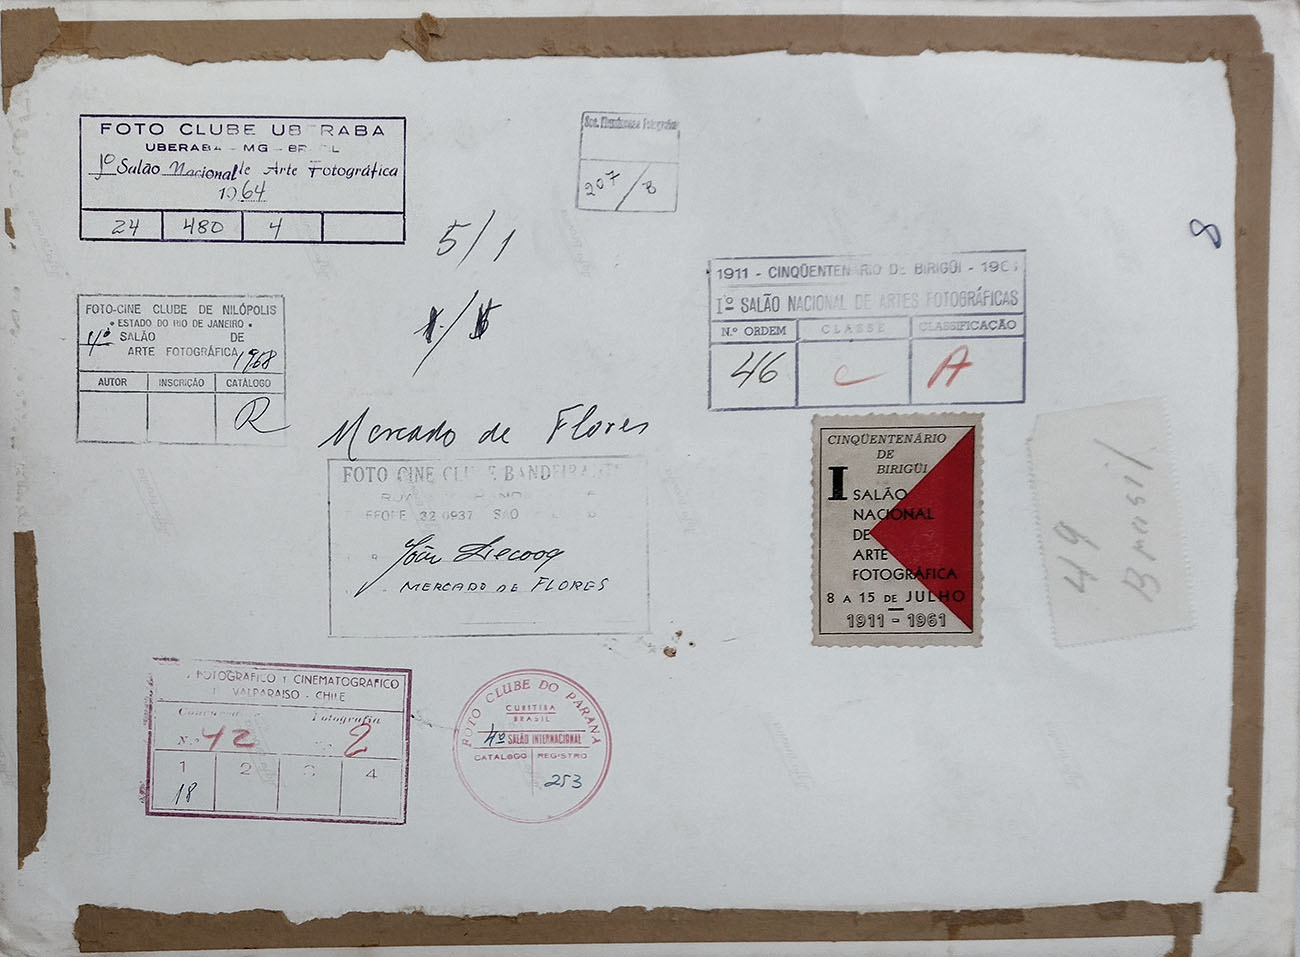 FOTO CLUBE UBERABA
UBERABA - MG - BRASIL
1º Salão Nacional de Arte Fotográfica
1964
24 480 4
207/B
5/1
8
1911 - CINQÜENTENÁRIO DE BIRIGÜI - 1961
Iº SALÃO NACIONAL DE ARTES FOTOGRÁFICAS
N.º ORDEM CLASSE CLASSIFICAÇÃO
46 C A
FOTO-CINE CLUBE DE NILÓPOLIS
• ESTADO DO RIO DE JANEIRO •
4º SALÃO DE
ARTE FOTOGRÁFICA 1968
AUTOR INSCRIÇÃO CATÁLOGO
R
Mercado de Flores
FOTO CINE CLUBE BANDEIRANTE
RUA
FONE 32 0937 SÃO
João Decoog
MERCADO DE FLORES
CINQÜENTENÁRIO
DE
BIRIGÜI
I
SALÃO
NACIONAL
DE
ARTE
FOTOGRÁFICA
8 A 15 DE JULHO
1911 - 1961
49
Brasil
FOTOGRAFICO Y CINEMATOGRAFICO
VALPARAISO - CHILE
Fotografia
N.º 42 2
1 2 3 4
18
FOTO CLUBE DO PARANÁ
CURITIBA
BRASIL
4º SALÃO INTERNACIONAL
CATÁLOGO REGISTRO
253